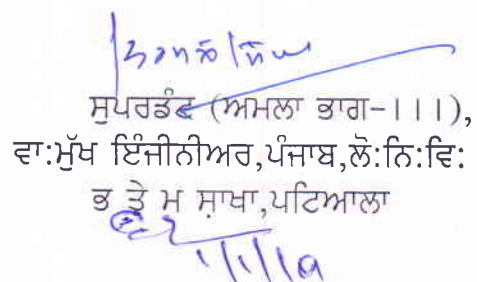 ਸੁਪਰਡੰਟ (ਅਮਲਾ ਭਾਗ-।।।),
ਵਾ:ਮੁੱਖ ਇੰਜੀਨੀਅਰ,ਪੰਜਾਬ,ਲੋ:ਨਿ:ਵਿ:
ਭ ਤੇ ਮ ਸ਼ਾਖਾ,ਪਟਿਆਲਾ